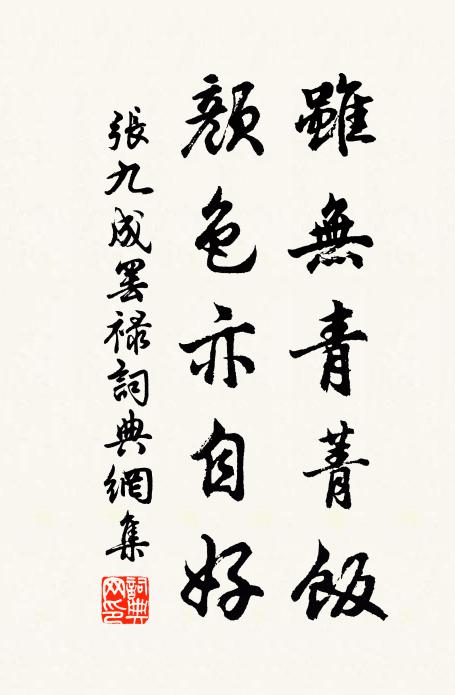 雖無青菁飯
顏色亦自好
張九成罷祿詞典網集
詞典網印